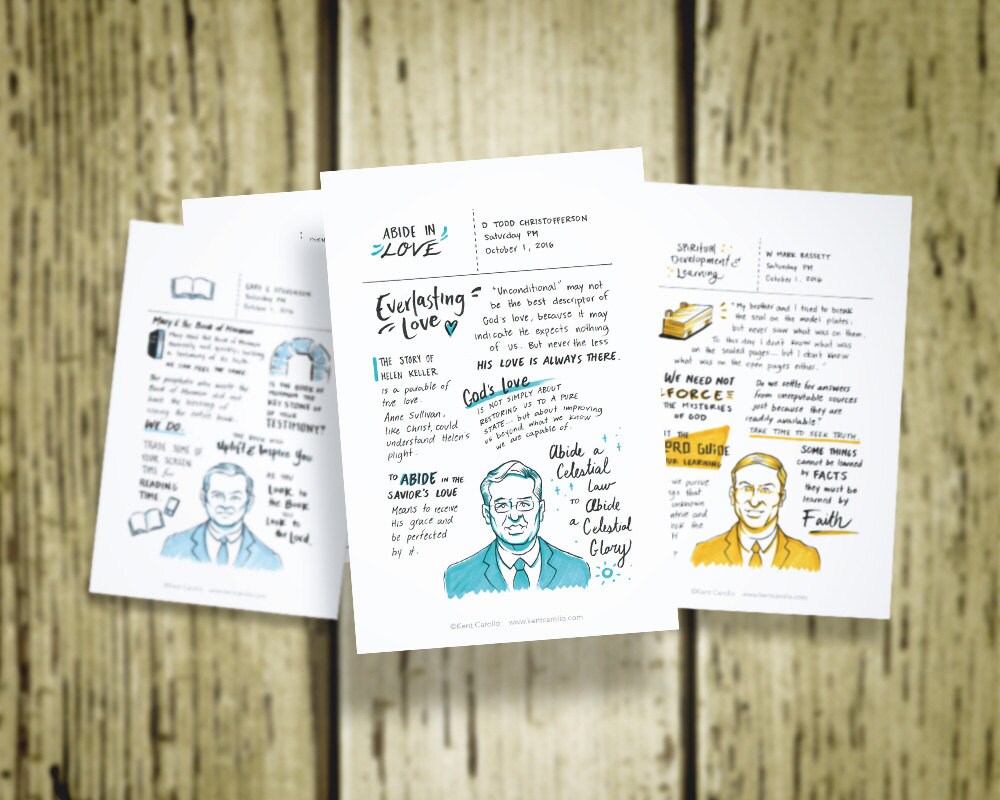 GARY E STEVENSON
Saturday PM
October 1, 2016
Mary & the Book of Mormon
WE CAN FEEL THE SAME
The prophets who wrote the
Book of Mormon
WE DO.
IS THE BOOK OF
MORMON THE
KEY STONE
OF YOUR
TESTIMONY?
Uplift & Inspire You
TRADE SOME OF
YOUR SCREEN
TIME for
READING
TIME
AS YOU
LOOK to
the Book,
YOU
LOOK to
the Lord.
©Kent Camilo www.kentcamilo.com
ABIDE IN
LOVE
D TODD CHRISTOFFERSON
Saturday PM
October 1, 2016
Everlasting
Love
"Unconditional" may not
be the best descriptor of
God's love, because it may
indicate He expects nothing
of us. But never the less
HIS LOVE IS ALWAYS THERE.
THE STORY OF
HELEN KELLER
is a parable of
true love.
Anne Sullivan,
like Christ, could
understand Helen's
plight.
God's Love
IS NOT SIMPLY ABOUT
RESTORING US TO A PURE
STATE... but about improving
us beyond what we know
we are capable of.
TO ABIDE IN THE
SAVIOR'S LOVE
Means to receive
His grace and
be perfected
by it.
Abide a
Celestial
Law
TO
Abide
a Celestial
Glory
©Kent Camilo www.kentcamilo.com
SPIRITUAL
Development &
Learning
W MARK BASSETT
Saturday PM
October 1, 2016
"My brother and I tried to break
the seal on the model plates,
but never saw what was on them.
To this day I don't know what was
on the sealed pages... but I don't know
what was on the open pages either."
WE NEED NOT
FORCE
THE MYSTERIES
OF GOD
Do we settle for answers
from unreputable sources
just because they are
readily available?
TAKE TIME TO SEEK TRUTH.
GUIDE
LEARNING
we pursue
SOME THINGS
cannot be learned
by FACTS
they must be
learned by
Faith
©Kent Camilo www.kentcamilo.com